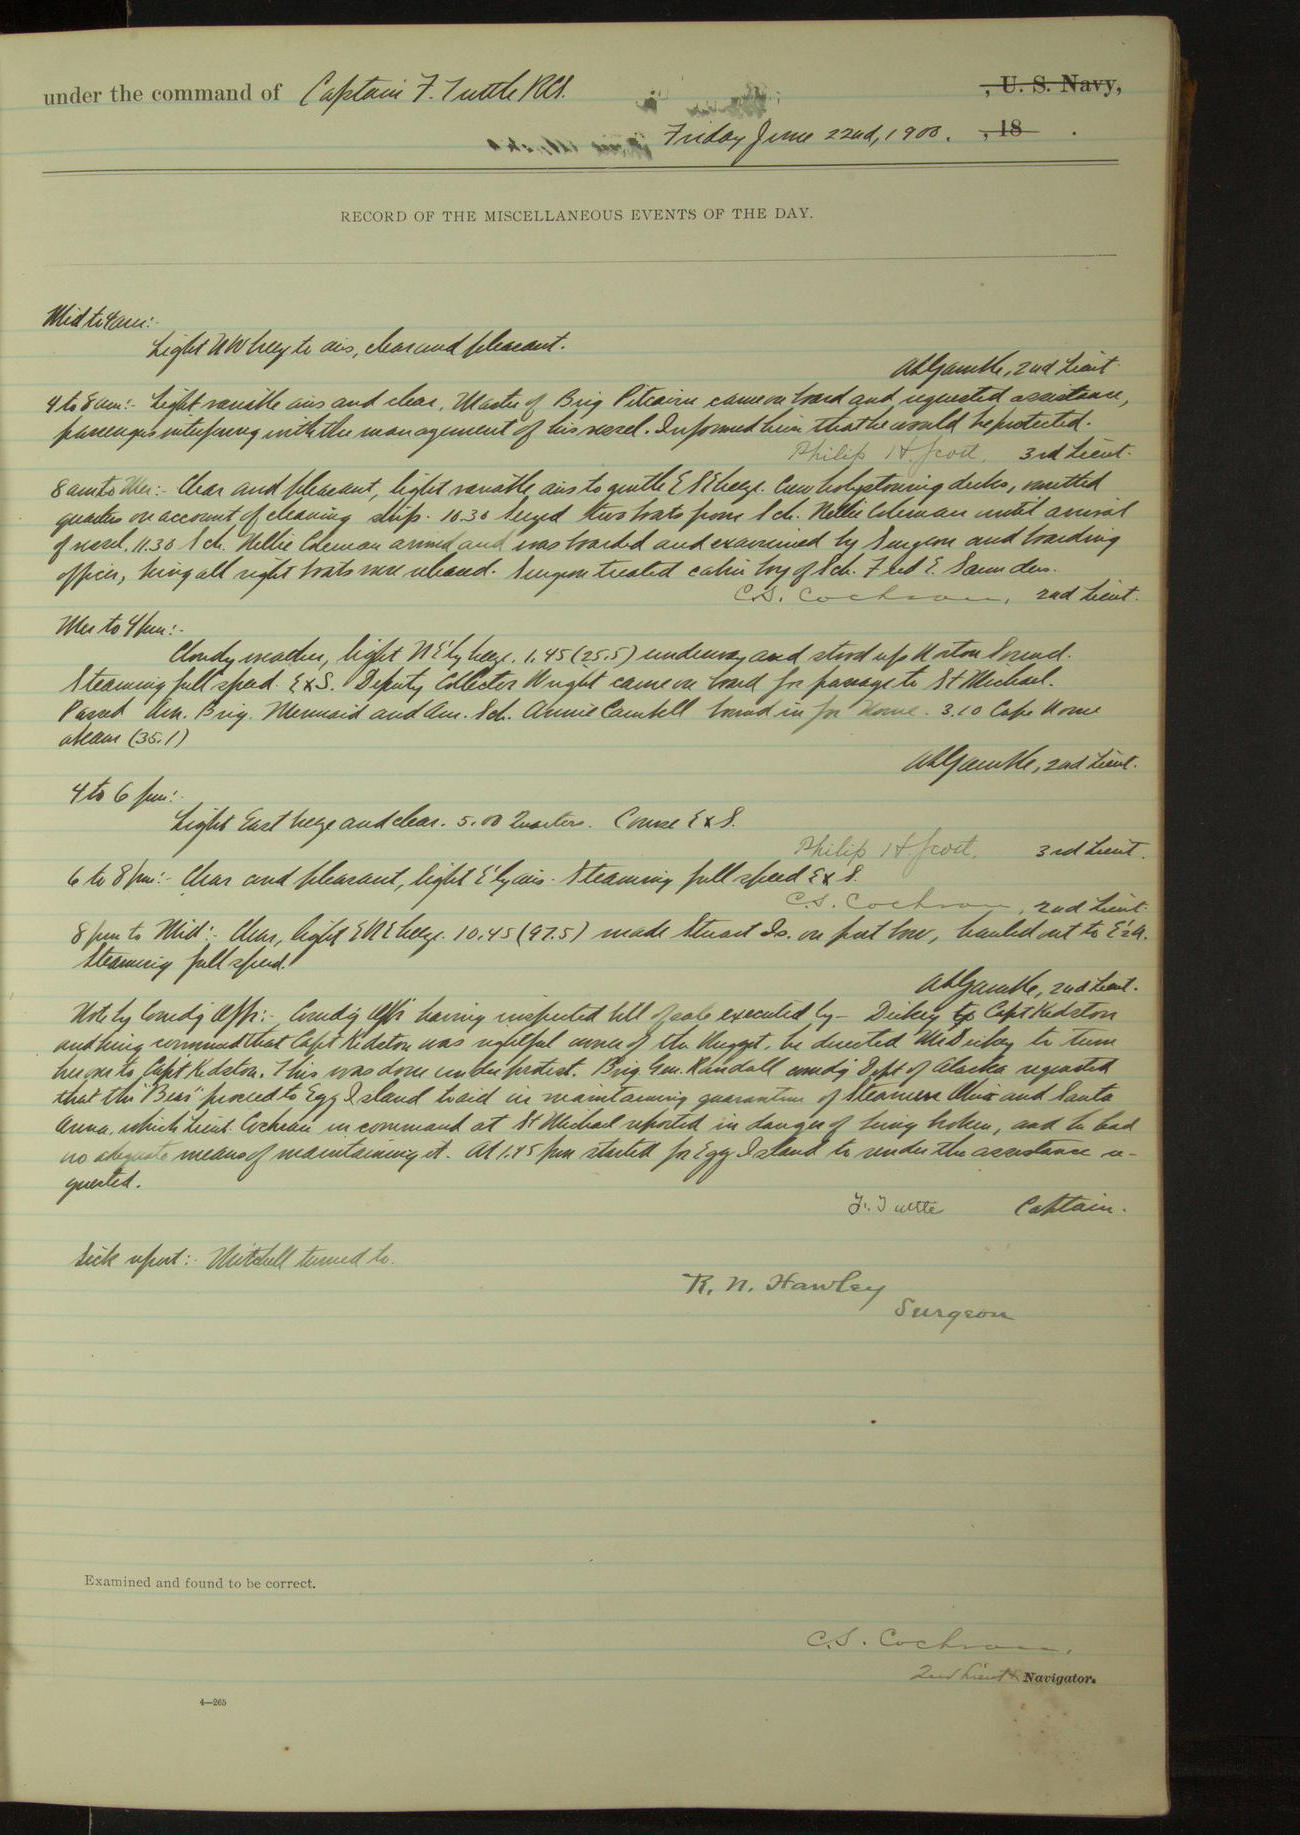 under the command of Captain F. Tuttle RCS. , U. S. Navy,
Friday June 22nd, 1900. , 18 .
RECORD OF THE MISCELLANEOUS EVENTS OF THE DAY.
Mid to 4 am:-
Light NW breeze to airs, clear and pleasant.
A L Gamble, 2nd Lieut
4 to 8 am:- Light variable airs and clear. Master of Brig Pitcairn came on board and requested assistance,
passengers interfering with the management of his vessel. Informed him that he would be protected.
Philip H. Scott, 3rd Lieut.
8 am to Mer:- Clear and pleasant, light variable airs to gentle ESE breeze. Crew holystoning decks, omitted
quarters on account of cleaning ship. 10.30 Seized two boats from Sch. Nellie Coleman until arrival
of vessel, 11.30 Sch. Nellie Coleman arrived and was boarded and examined by Surgeon and boarding
officer, being all right boats were released. Surgeon treated cabin boy of Sch. Fred E. Saunders.
C.S. Cochran, 2nd Lieut.
Mer to 4 pm:-
Cloudy weather, light NE'ly breeze. 1.45 (25.5) underway and stood up Norton Sound.
Steaming full speed. ExS. Deputy Collector Wright came on board for passage to St Michael.
Passed Am. Brig. Mermaid and Am. Sch. Annie Cambell bound in for Nome. 3.10 Cape Nome
abeam (35.1)
A L Gamble, 2nd Lieut.
4 to 6 pm:-
Light East breeze and clear. 5.00 Quarters. Course ExS.
Philip H. Scott, 3rd Lieut.
6 to 8 pm:- Clear and pleasant, light E'ly airs. Steaming full speed ExS.
C.S. Cochran, 2nd Lieut.
8 pm to Mid:- Clear, light ENE breeze. 10.45 (97.5) made Stuart Is. on port bow, hauled out to
Steaming full speed.
A L Gamble, 2nd Lieut.
Note by Comdg Offr:- Comdg Offr having inspected bill of sale executed by — Dickey to Capt Kidston
and being convinced that Capt Kidston was rightful owner of the Nugget, he directed Mr Dickey to turn
her over to Capt Kidston. This was done under protest. Brig. Gen. Randall comdg Dept of Alaska requested
that the "Bear" proceed to Egg Island to aid in maintaining quarantine of Steamers Ohio and Santa
Anna, which Lieut. Cochran in command at St Michael reported in danger of being broken, and he had
no adequate means of maintaining it. At 1.45 pm started for Egg Island to render the assistance re-
quested.
F. Tuttle Captain.
Sick report:- Mitchell turned to.
R. N. Hawley
Surgeon
Examined and found to be correct.
C.S. Cochran,
2nd Lieut & Navigator.
4—265